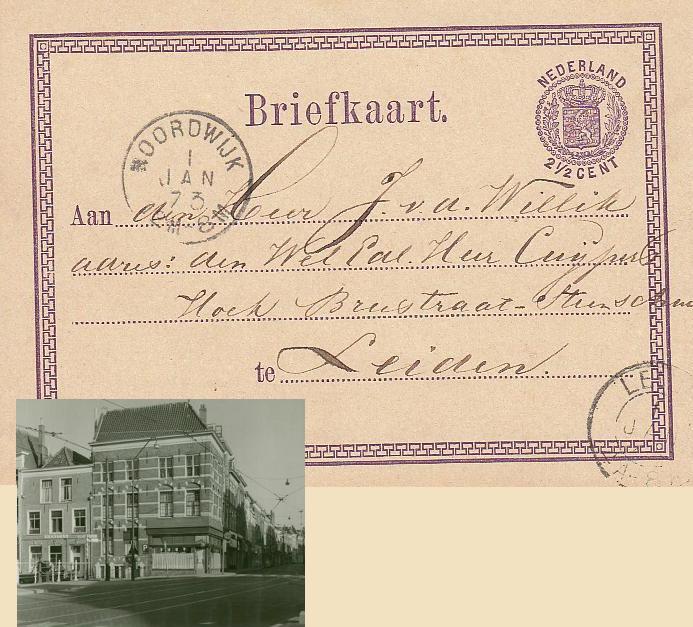 NEDERLAND
2½ CENT
Briefkaart.
NOORDWIJK
1
JAN
73
8M
Aan den Heer J. v. d. Willik
adres: den Wel Edl. Heer Cuijpers
Hoek Breestraat-
te Leiden.
LE